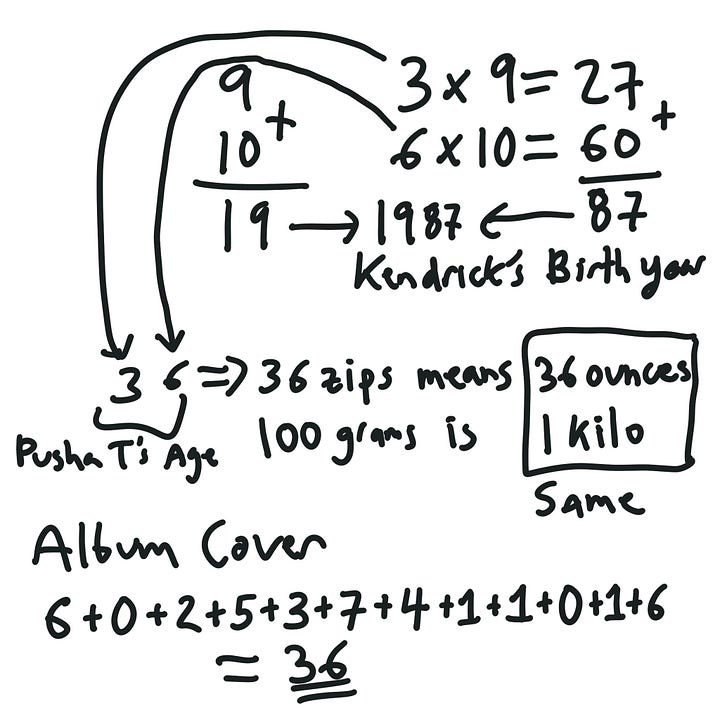 9 +
10
19 → 1987 ← 87
3 x 9 = 27 +
6 x 10 = 60
Kendrick's Birth year
3 6 => 36 zips means 36 ounces
Pusha T's Age
100 grams is 1 Kilo
Same
Album Cover
6+0+2+5+3+7+4+1+1+0+1+6
= 36